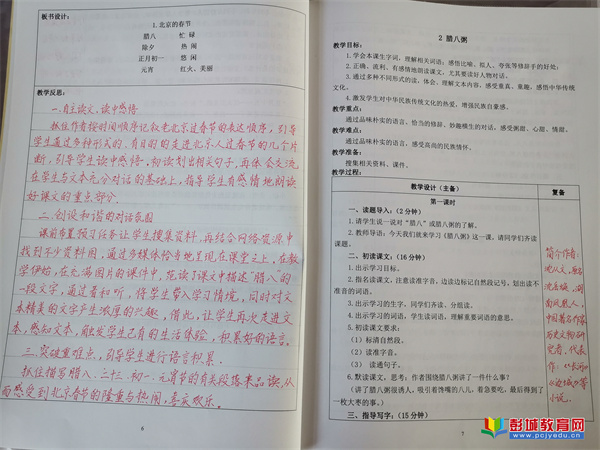 板书设计：
1.北京的春节
腊八 忙 碌
除夕 热 闹
正月初一 悠 闲
元宵 红火、美丽
教学反思：
一.自主读文,读中感悟
抓住作者按时间顺序记叙老北京过春节的表达顺序，引导
学生通过多种形式的、有目的的走进北京人过春节的几个片
断，引导学生读中感悟，初读划出相关句子，再体会交流
在学生与文本充分对话的基础上，指导学生有感情地朗读
好课文的重点部分.
二.创设和谐的对话氛围
课前布置预习任务让学生搜集资料，再结合网络资源中
找到不少资料图，通过多媒体恰当地呈现在课堂之上，在教
学伊始，在充满图片的课件中，范读了课文中描述"腊八"的
一段文字，通过看和听，将学生带入学习情境，同时对文
本精美的文字产生浓厚的兴趣，借此，让学生再次走进文
本，感知文本，触发学生已有的生活体验，积累好的语言。
三.突破重难点，引导学生进行语言积累.
抓住描写腊八、二十三、初一、元宵节的有关段落来品读，从
而感受到北京春节的隆重与热闹,喜庆欢乐。
6
2 腊八粥
教学目标：
1.学会本课生字词，理解相关词语；感悟比喻、拟人、夸张等修辞手的好处；
2.正确、流利、有感情地朗读课文，尤其要读好人物对话。
3.通过多种不同形式的读，体会、理解文本内容，感受童真、童趣，感悟中华传统
文化。
4.激发学生对中华民族传统文化的热爱，增强民族自豪感。
教学重点：
通过品味朴实的语言、恰当的修辞、妙趣横生的对话，感受粥甜、心甜、情甜。
教学难点：
通过品味朴实的语言，感受高尚的民族情怀。
教学准备：
搜集相关资料、课件。
教学过程：
教学设计（主备） 复备
第一课时
一、读题导入：（2 分钟）
1.请学生说一说对“腊八”或腊八粥的了解。
2.教师导语：今天我们就来学习《腊八粥》这一课，请同学们齐读
课题。
二、初读课文：（16 分钟）
1.出示学习目标。
2.指名读课文，注意读准字音，边读边标记自然段记号，划出读不
准音的词语。
3.出示学习的生字，同学们齐读、分组读。
4.出示学习的词语，学生读词语，理解重要词语的意思。
5.初读课文要求：
（1）标清自然段。
（2）读准字音。
（3） 读通句子。
6.默读课文，思考：作者围绕腊八粥讲了一件什么事？
（讲了八儿围腊八粥很诱人，吸引着馋嘴的八儿，看急要吃，最后得到了
一枚大枣的事。）
三、指导写字：（15 分钟）
简介作者：
沈从文，原名
沈岳焕，湖
南凤凰人，
中国著名作家
历史文物研
究者.代表
作：《长河》
《边城》等
小说.
7
彭城教育网
www.pcjyedu.cn